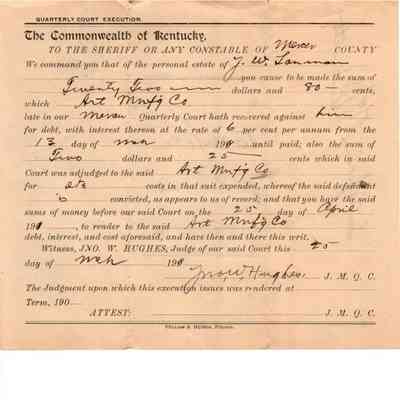 QUARTERLY COURT EXECUTION.
The Commonwealth of Kentucky,
TO THE SHERIFF OR ANY CONSTABLE OF Mercer COUNTY
We command you that of the personal estate of J. W.
you cause to be made the sum of
Twenty Two dollars and 80 — cents,
which Art Mnfg Co
late in our Mercer Quarterly Court hath recovered against him
for debt, with interest thereon at the rate of 6 per cent per annum from the
13 day of mch 190 until paid; also the sum of
Two dollars and 25 — cents which in said
Court was adjudged to the said Art Mnfg Co
for costs in that suit expended, whereof the said defendant
is convicted, as appears to us of record; and that you have the said
sums of money before our said Court on the 25 day of April
190 , to render to the said Art Mnfg Co
debt, interest, and cost aforesaid, and have then and there this writ.
Witness, JNO. W. HUGHES, Judge of our said Court this 25
day of mch 190
Jno. W. Hughes J. M. Q. C.
The Judgment upon which this execution issues was rendered at
Term, 190—
ATTEST: J. M. Q. C.